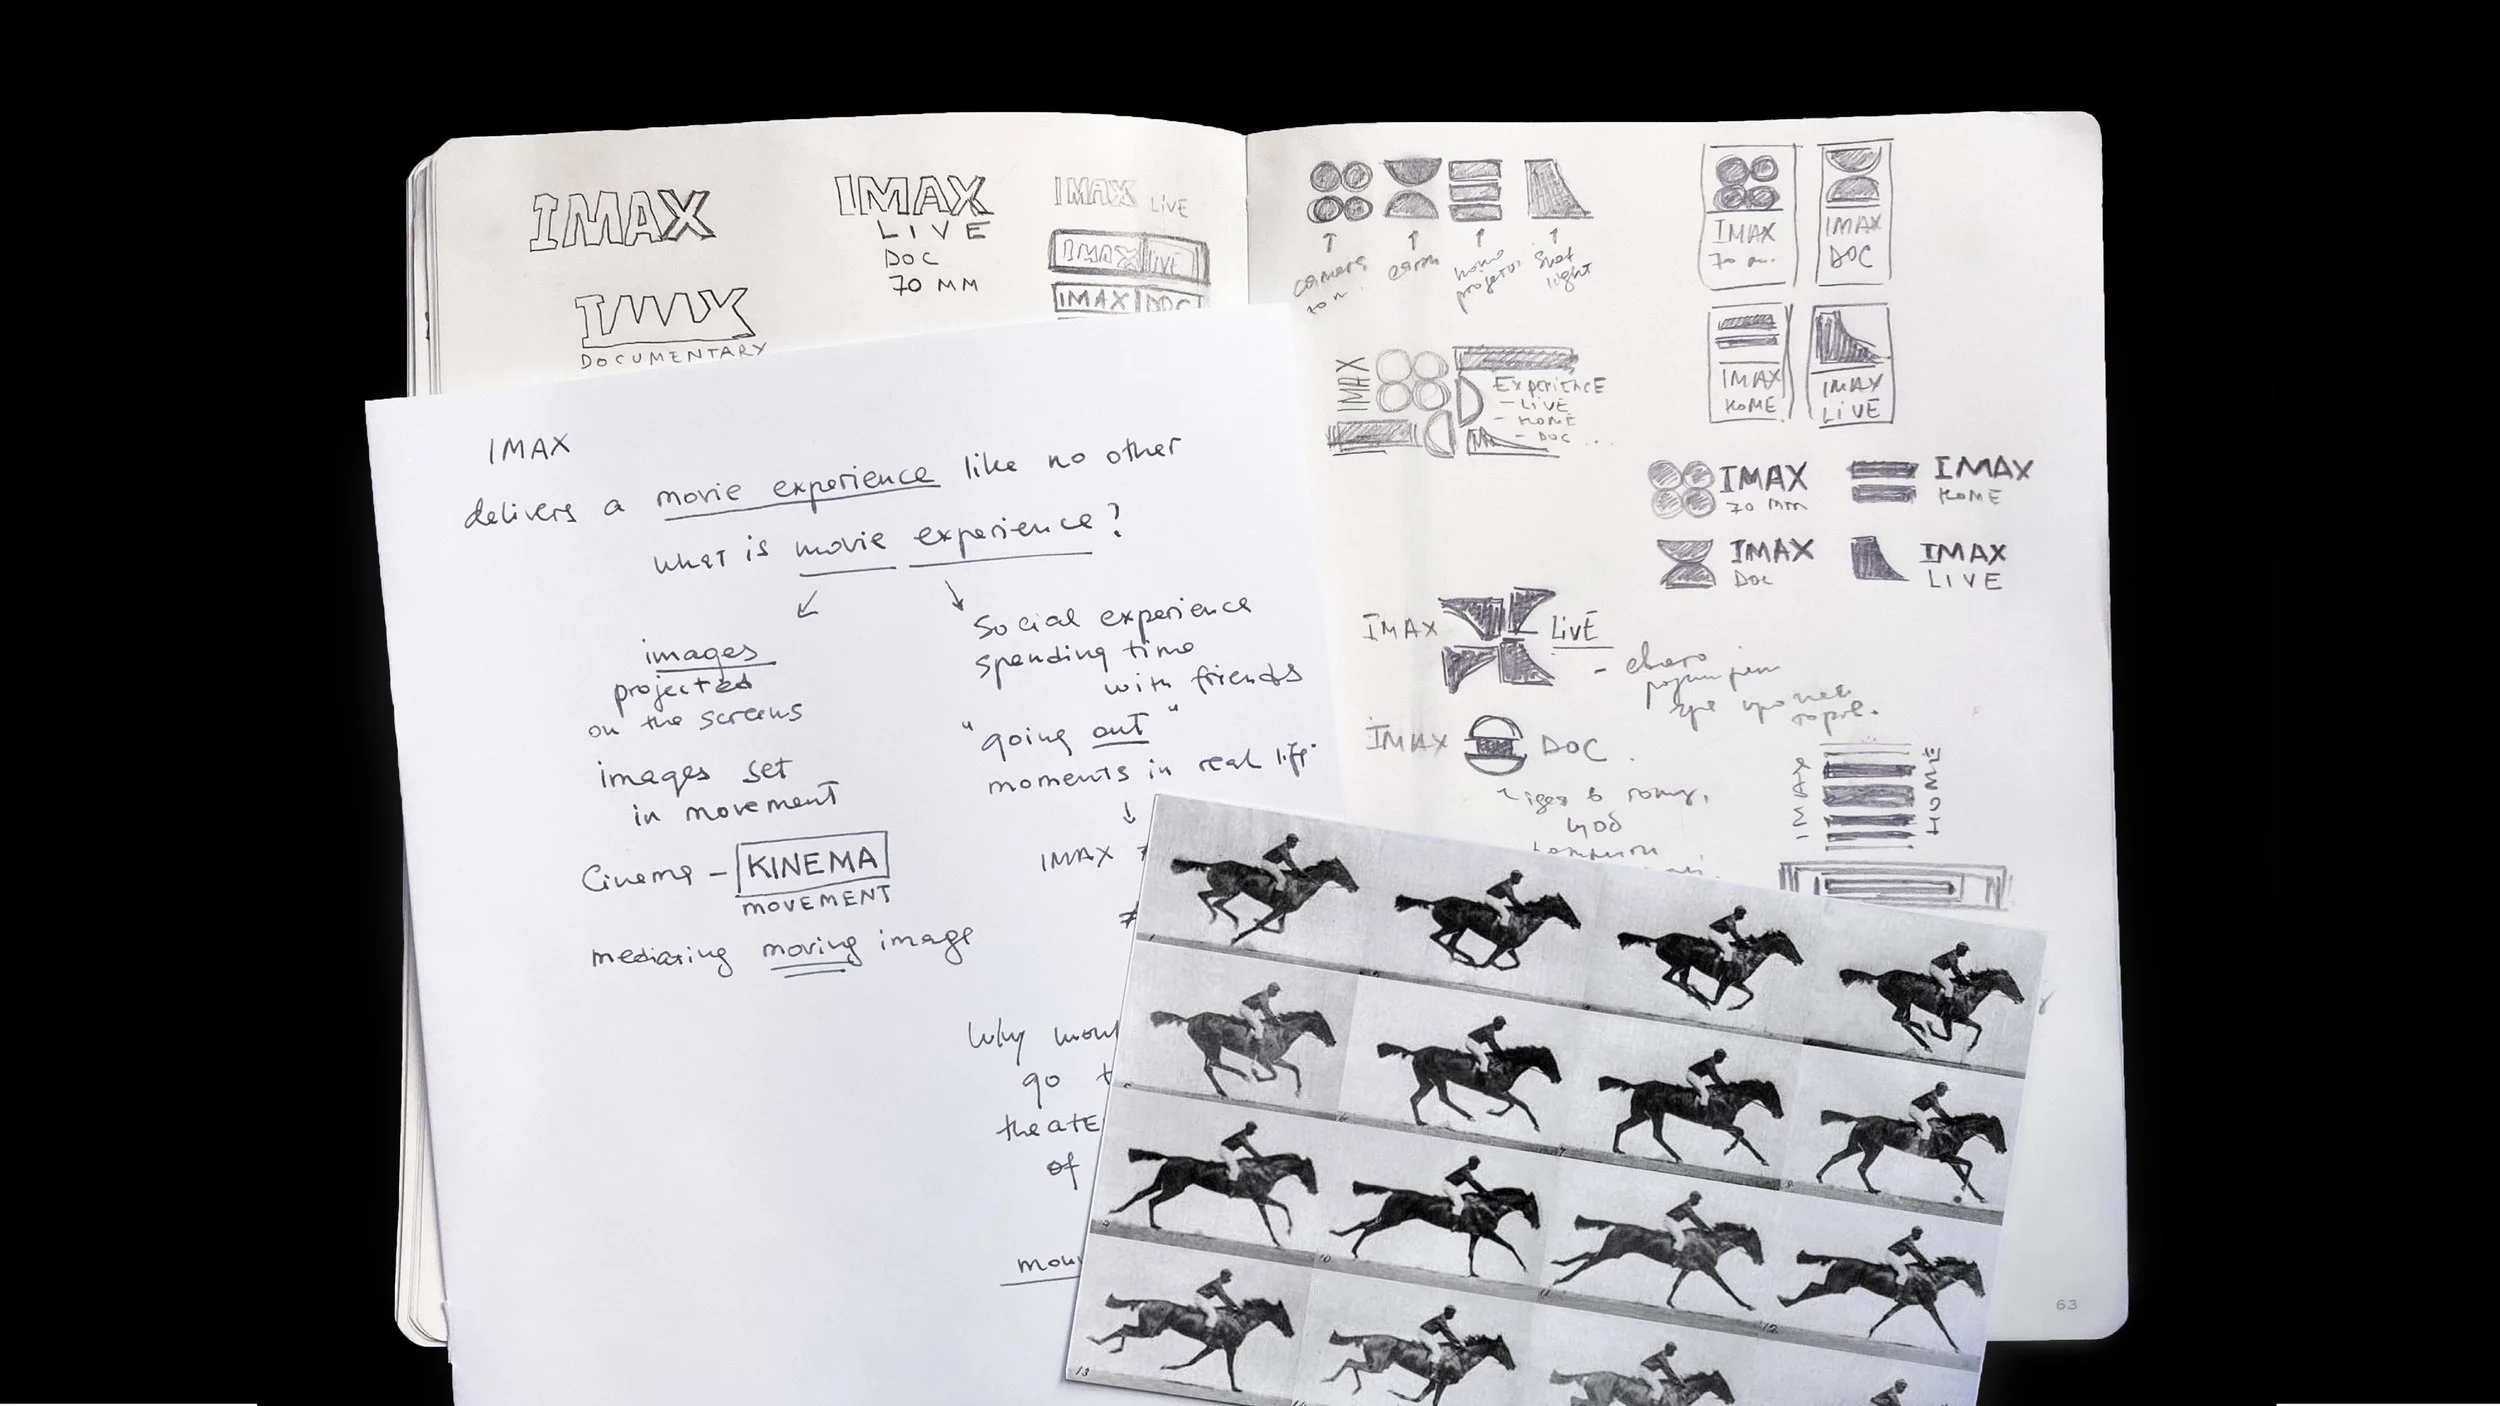 IMAX
IMAX
LIVE
DOC
70 MM
IMAX LIVE
IMAX LIVE
IMAX DOC
IMAX
DOCUMENTARY
IMAX
delivers a movie experience like no other
what is movie experience?
images
projected
on the screens
images set
in movement
Cinema – KINEMA
MOVEMENT
mediating moving image
Social experience
spending time
with friends
"going out"
moments in real life
IMAX
≠
Why
go
theatE
of
camera
home
spot
light
IMAX
70 m.
IMAX
DOC
IMAX
HOME
IMAX
LIVE
IMAX
EXPERIENCE
– LIVE
– HOME
– DOC ...
IMAX
70 mm
IMAX
HOME
IMAX
DOC
IMAX
LIVE
IMAX LIVE
IMAX DOC
IMAX HOME
1
9
10
11
12
13
63